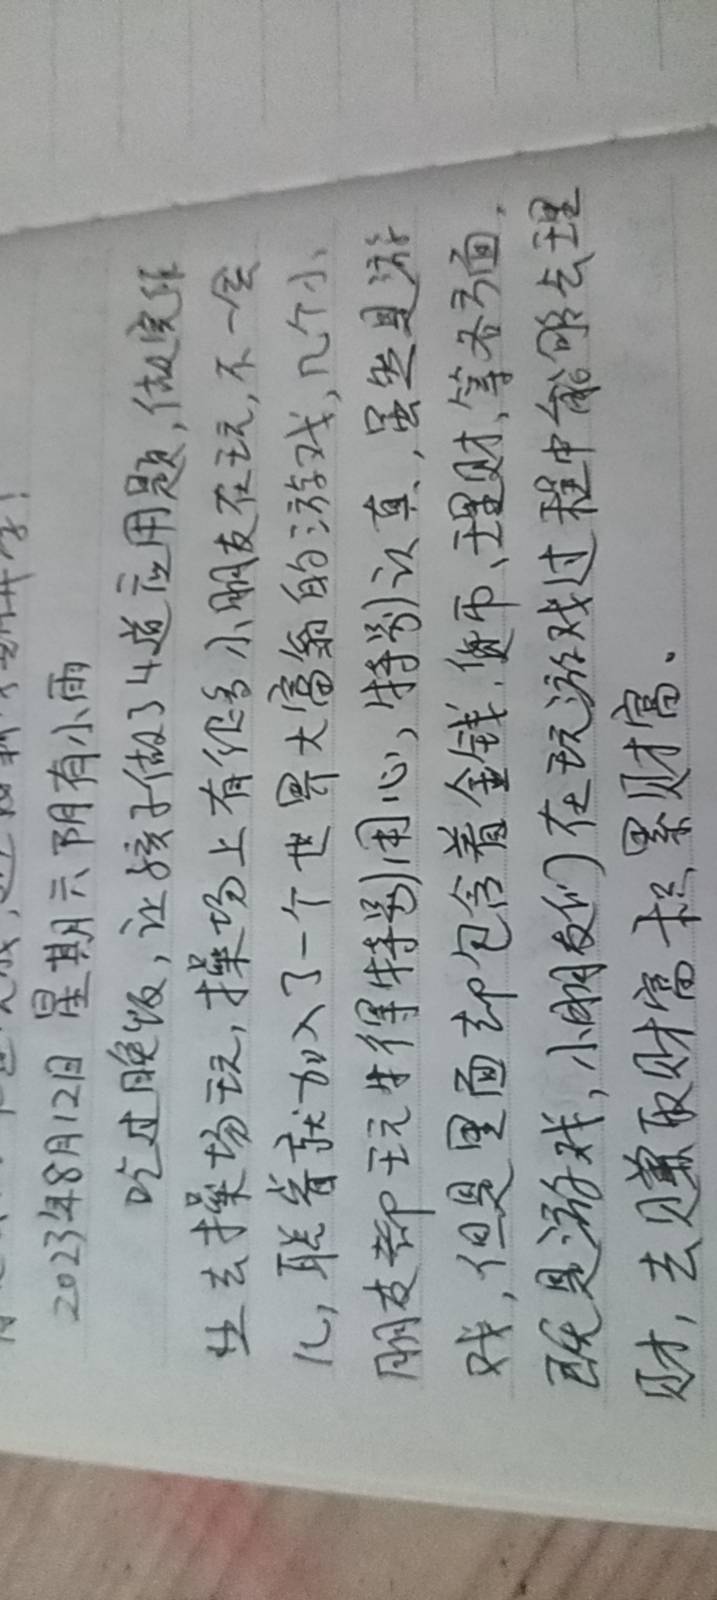 2023年8月12日 星期六 阴有小雨
吃过晚饭,让孩子做了4道应用题,做完作
业去操场玩,操场上有很多小朋友在玩,不一会
儿,聪睿就加入了一个世界大富翁的游戏,几个小
朋友都玩得特别用心,特别认真,虽然是游
戏,但是里面却包含着金钱、货币、理财、等各方面,
既是游戏,小朋友们在玩游戏过程中能够去理
财,去赚取财富卡积累财富。